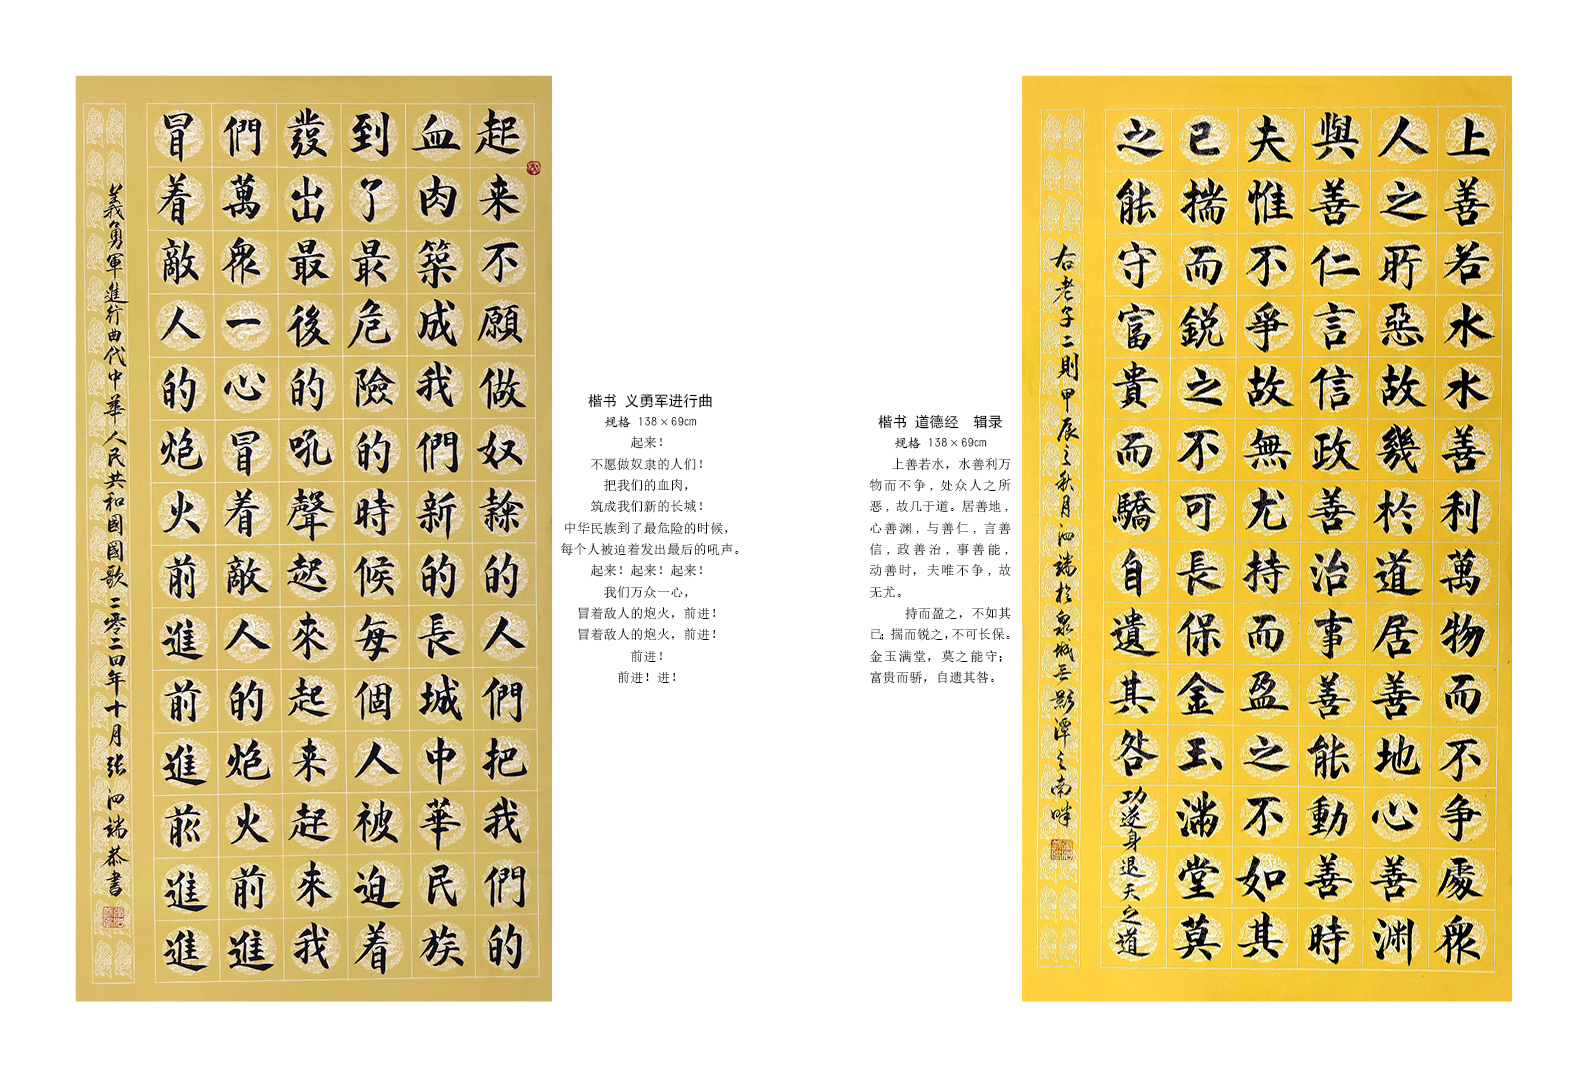 起来不願做奴隸的人們把我們的
血肉築成我們新的長城中華民族
到了最危險的時候每個人被迫着
發出最後的吼聲起來起来起來我
們萬衆一心冒着敵人的炮火前進
冒着敵人的炮火前進前進前進進
義勇軍進行曲代中華人民共和國國歌 二零二四年十月 张泗端恭書
楷书 义勇军进行曲
规格 138×69cm
起来！
不愿做奴隶的人们！
把我们的血肉，
筑成我们新的长城！
中华民族到了最危险的时候，
每个人被迫着发出最后的吼声。
起来！起来！起来！
我们万众一心，
冒着敌人的炮火，前进！
冒着敌人的炮火，前进！
前进！
前进！进！
楷书 道德经 辑录
规格 138×69cm
上善若水，水善利万
物而不争，处众人之所
恶，故几于道。居善地，
心善渊，与善仁，言善
信，政善治，事善能，
动善时，夫唯不争，故
无尤。
持而盈之，不如其
已；揣而锐之，不可长保。
金玉满堂，莫之能守；
富贵而骄，自遗其咎。
上善若水水善利萬物而不争處衆
人之所惡故幾於道居善地心善渊
與善仁言信政善治事善能動善時
夫惟不爭故無尤持而盈之不如其
已揣而鋭之不可長保金玉滿堂莫
之能守富貴而驕自遺其咎功遂身退天之道
右老子二則甲辰之秋月泗端於泉城无影潭之南畔